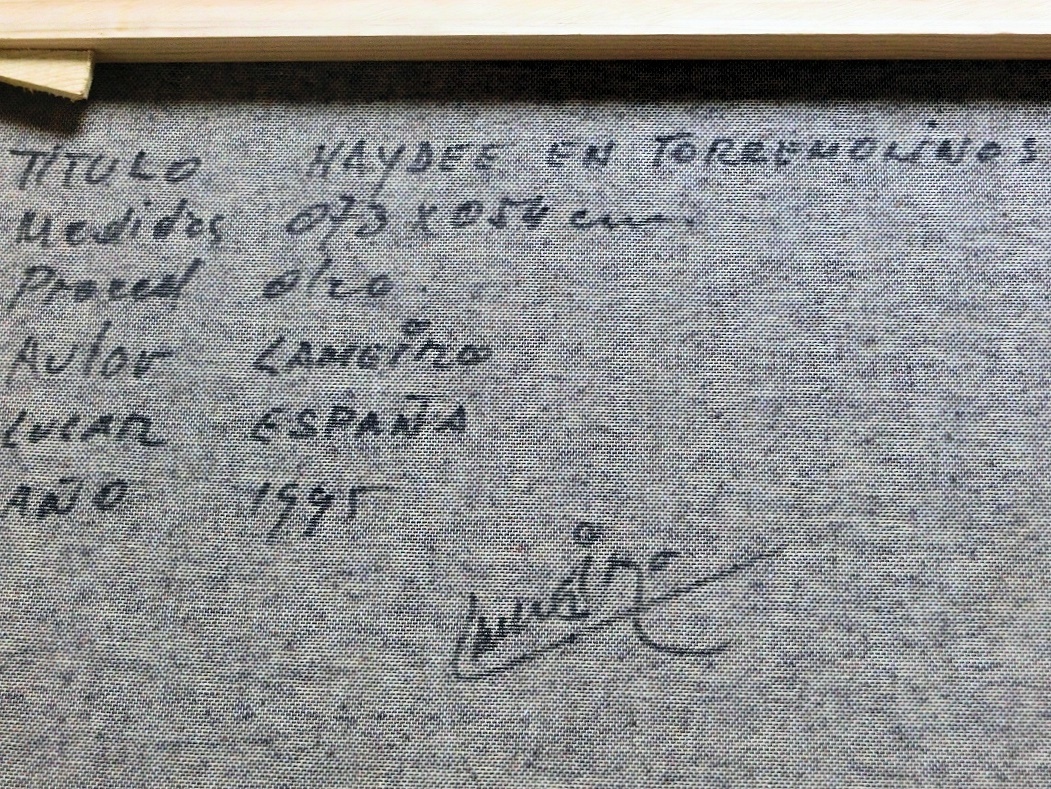 TÍTULO HAYDEE EN TORREMOLINOS
Medidas 073 X 054 cm.
Proced oleo.
AUTOR LAMEIRO
LUGAR ESPAÑA
AÑO 1995
Lameiro